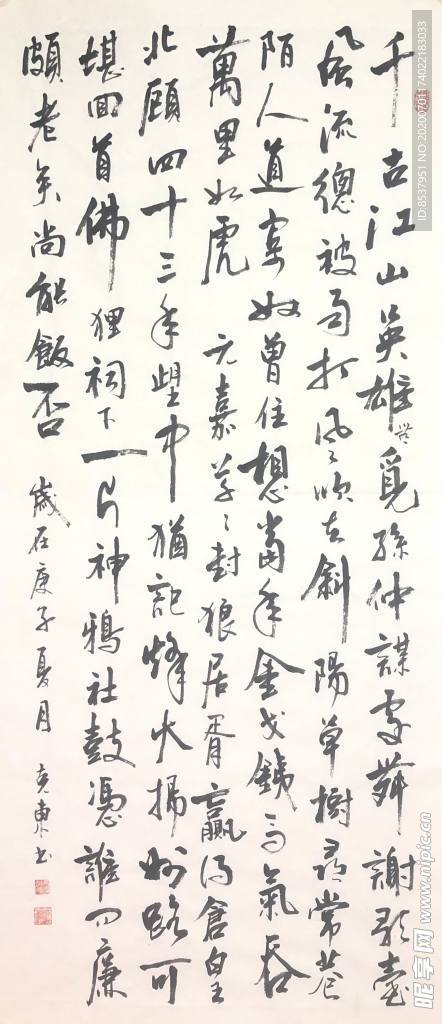 千古江山英雄無覓孫仲謀處舞謝歌臺
風流總被雨打風吹去斜陽草樹尋常巷
陌人道寄奴曾住想當年金戈鐵馬氣吞
萬里如虎元嘉草々封狼居胥贏得倉皇
北顧四十三年望中猶記烽火揚州路可
堪回首佛狸祠下一片神鴉社鼓憑誰問廉
頗老矣尚能飯否
歲在庚子夏月 東书
昵享网 www.nipic.com